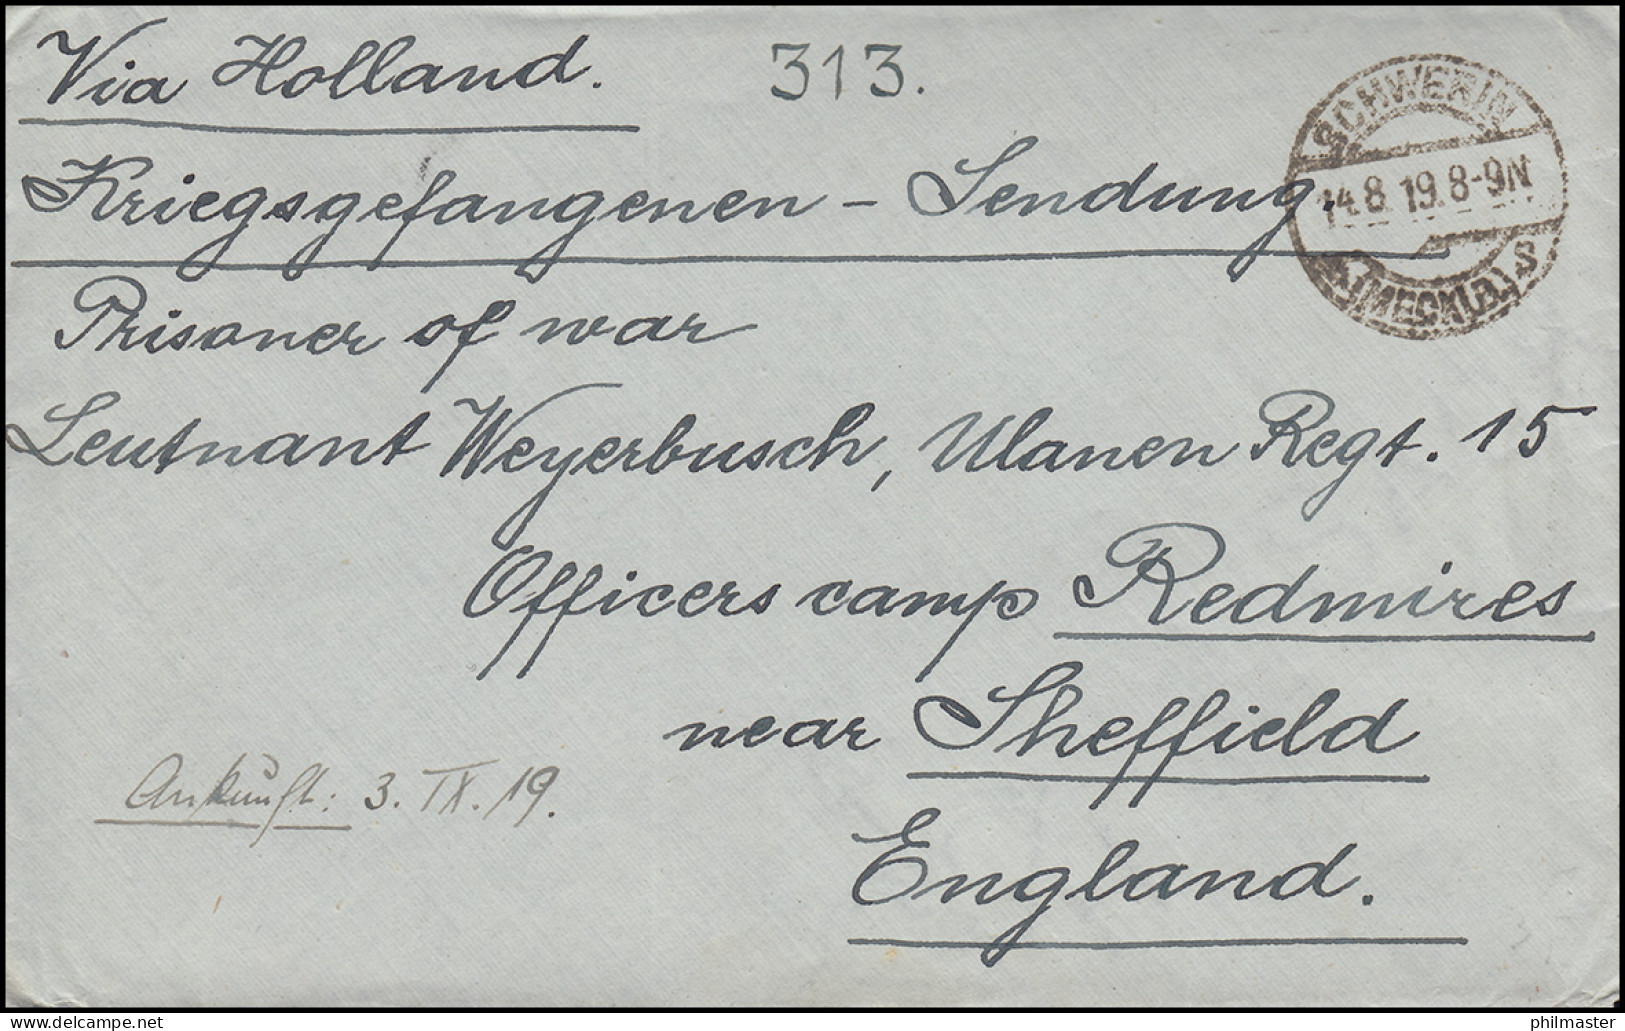 Via Holland. 313.
SCHWERIN
14.8.19.8-9N
(MECKLB.) S
Kriegsgefangenen - Sendung.
Prisoner of war
Leutnant Weyerbusch, Ulanen Regt. 15
Officers camp Redmires
near Sheffield
Ankunft: 3. IX. 19.
England.
philmaster